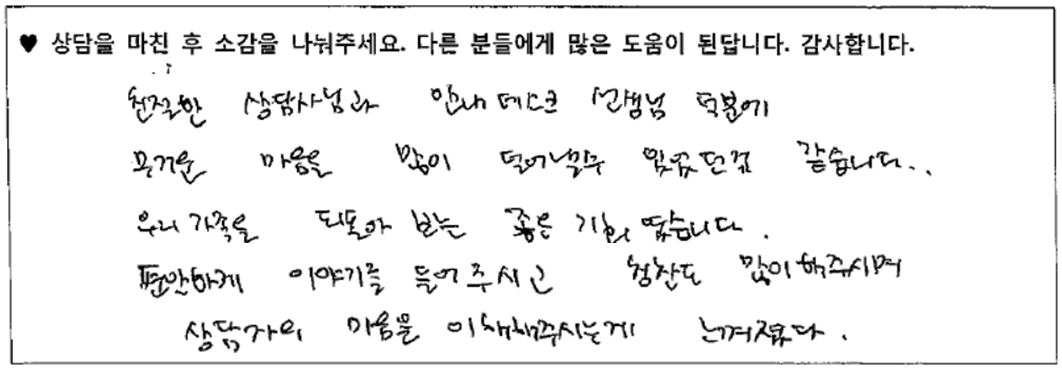 ♥ 상담을 마친 후 소감을 나눠주세요. 다른 분들에게 많은 도움이 된답니다. 감사합니다.
친절한 상담사님과 안내데스크 선생님 덕분에
무거운 마음을 많이 덜어낼수 있었던것 같습니다..
우리 가족을 되돌아 보는 좋은 기회 였습니다.
편안하게 이야기를 들어주시고 칭찬도 많이해주시며
상담자의 마음을 이해해주시는게 느껴졌다.